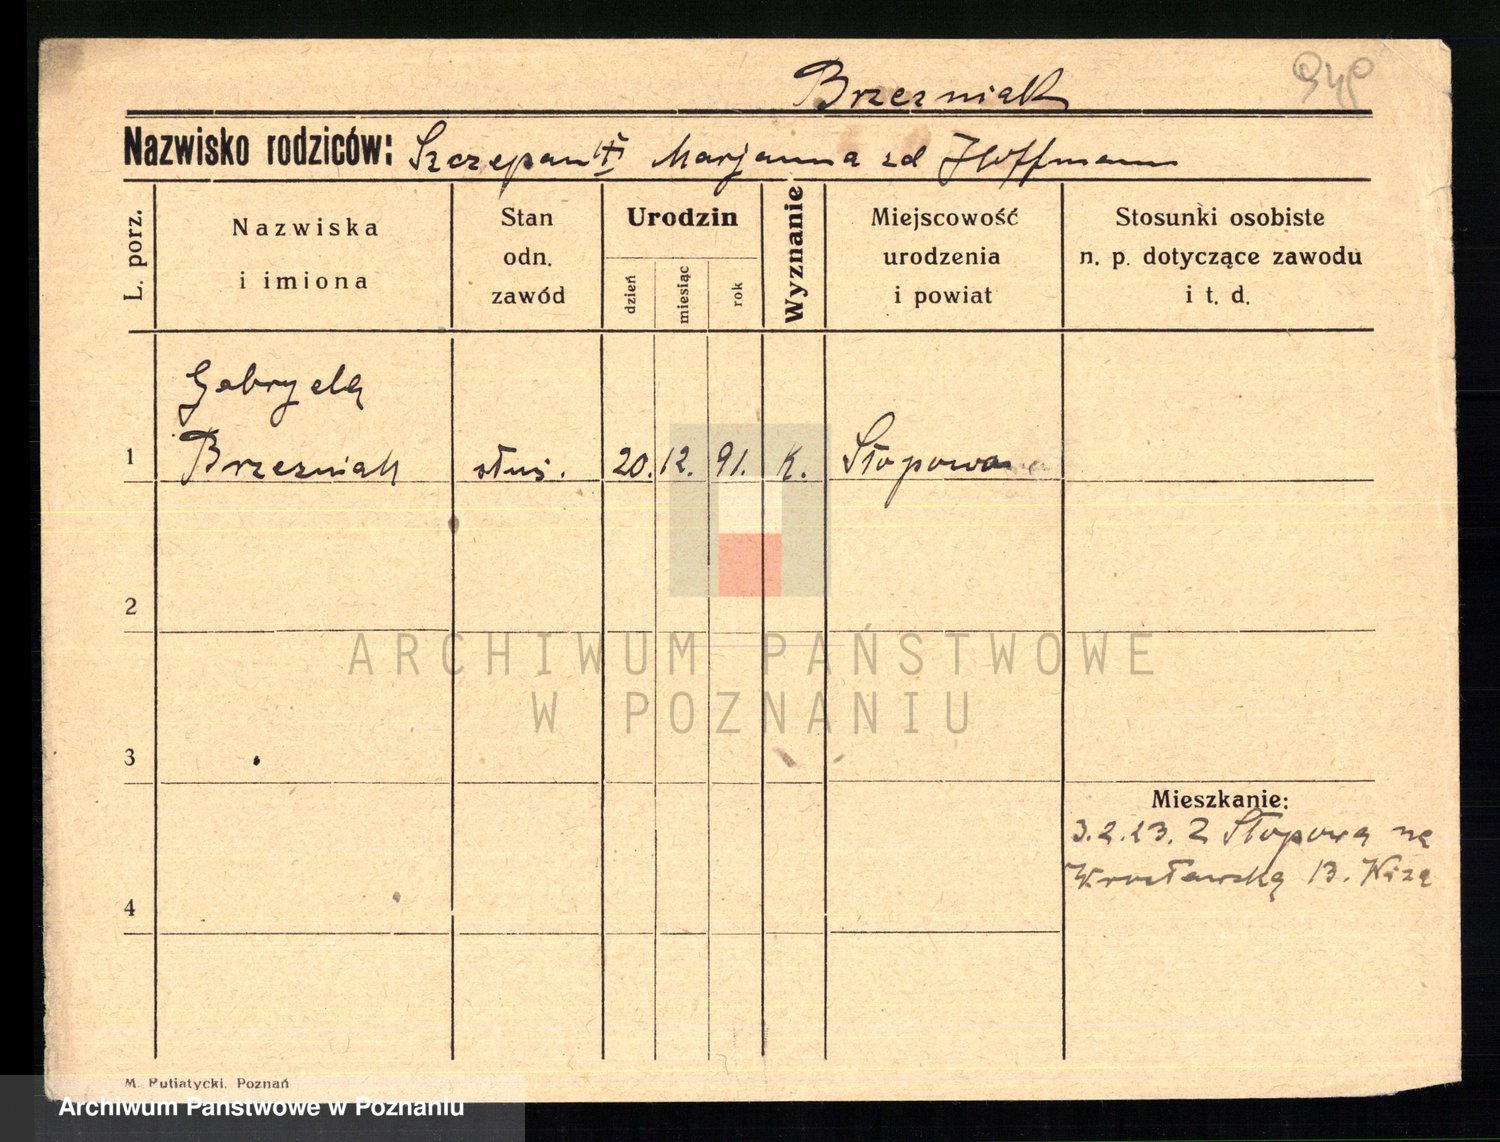 Brzezniak
Nazwisko rodziców: Szczepan Marjanna zd Hoffmann
L. porz.
Nazwiska
i imiona
Stan
odn.
zawód
Urodzin
dzień
miesiąc
rok
Wyznanie
Miejscowość
urodzenia
i powiat
Stosunki osobiste
n. p. dotyczące zawodu
i t. d.
Gabryela
1 Brzezniak służ. 20. 12. 91. K. Słopowo
2
ARCHIWUM PAŃSTWOWE
W POZNANIU
3
Mieszkanie:
3.2.23. Z Słopowa na
Wrocławską 13.
4
M. Putiatycki, Poznań
Archiwum Państwowe w Poznaniu